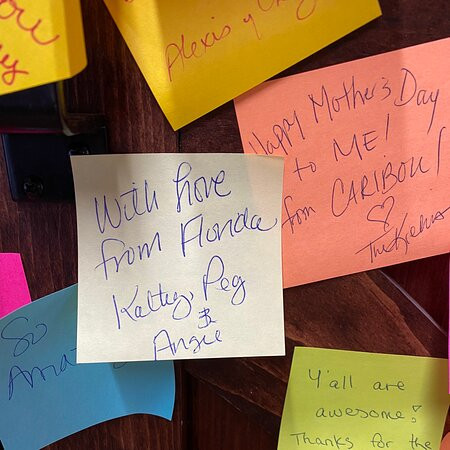 you
Alexis y
Happy Mother's Day
to ME!
from CARIBOU!
With Love
from Florida
Kathy, Peg
&
Angie
So
Ama
Y'all are
awesome!
Thanks for the